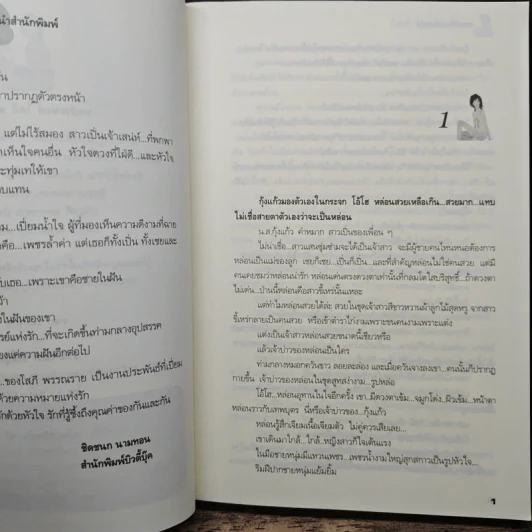 นำสำนักพิมพ์
าปรากฏตัวตรงหน้า
แต่ไม่ไร้สมอง สาวเป็นเจ้าเสน่ห์...ที่พกพา
าเห็นใจคนอื่น หัวใจดวงที่ใฝ่ดี...และหัวใจ
ะทุ่มเทให้เขา
บแทน
...เปี่ยมน้ำใจ ผู้ที่มองเห็นความดีงามที่ฉาย
คือ...เพชรล้ำค่า แต่เธอก็ทั้งเป็น ทั้งเชยและ
บเธอ...เพราะเขาคือชายในฝัน
งในฝันของเขา
รย์แห่งรัก...ที่จะเกิดขึ้นท่ามกลางอุปสรรค
ียงแค่ความฝันอีกต่อไป
...ของโสภี พรรณราย เป็นงานประพันธ์ที่เปี่ยม
ด้วยความหมายแห่งรัก
กด้วยหัวใจ รักที่รู้ซึ้งถึงคุณค่าของกันและกัน
ชิดชนก นามทอน
สำนักพิมพ์บิวตี้บุ๊ค
1
กุ้งแก้วมองตัวเองในกระจก โอ้โฮ หล่อนสวยเหลือเกิน...สวยมาก...แทบ
ไม่เชื่อสายตาตัวเองว่าจะเป็นหล่อน
น.ส.กุ้งแก้ว คำหมาก สาวเป็นของเพื่อน ๆ
ไม่น่าเชื่อ...สาวแสนซุ่มซ่ามจะได้เป็นเจ้าสาว จะมีผู้ชายคนไหนหนอต้องการ
หล่อนเป็นแม่ของลูก เชยก็เชย...เป็นก็เป็น...และที่สำคัญหล่อนไม่ใช่คนสวย แต่มี
คนเคยชมว่าหล่อนน่ารัก หล่อนเด่นตรงดวงตาเท่านั้นที่กลมโตใสบริสุทธิ์...ถ้าดวงตา
ไม่เด่น...ป่านนี้หล่อนคือสาวขี้เหร่นั้นแหละ
แต่ทำไมหล่อนสวยได้ล่ะ สวยในชุดเจ้าสาวสีขาวหวานผ้าลูกไม้สุดหรู จากสาว
ขี้เหร่กลายเป็นคนสวย หรือเข้าตำราไก่งามเพราะขนคนงามเพราะแต่ง
แต่งเป็นเจ้าสาวหล่อนสวยขนาดนี้เชียวหรือ
แล้วเจ้าบ่าวของหล่อนเป็นใคร
ท่ามกลางหมอกควันขาว ลอยละล่อง และเมื่อควันจางลงเขา...คนนั้นก็ปรากฏ
กายขึ้น เจ้าบ่าวของหล่อนในชุดสูทสง่างาม...รูปหล่อ
โอ้โฮ...หล่อนอุทานในใจอีกครั้ง เขา...มีดวงตาเข้ม...จมูกโด่ง...ผิวเข้ม...หน้าตา
หล่อราวกับเทพบุตร นี่หรือเจ้าบ่าวของ...กุ้งแก้ว
หล่อนรู้สึกเจียมเนื้อเจียมตัว ไม่คู่ควรเสียเลย...
เขาเดินมาใกล้...ใกล้...หญิงสาวก็ใจเต้นแรง
ในมือชายหนุ่มมีแหวนเพชร...เพชรน้ำงามใหญ่สุกสกาวเป็นรูปหัวใจ...
ริมฝีปากชายหนุ่มแย้มยิ้ม
1